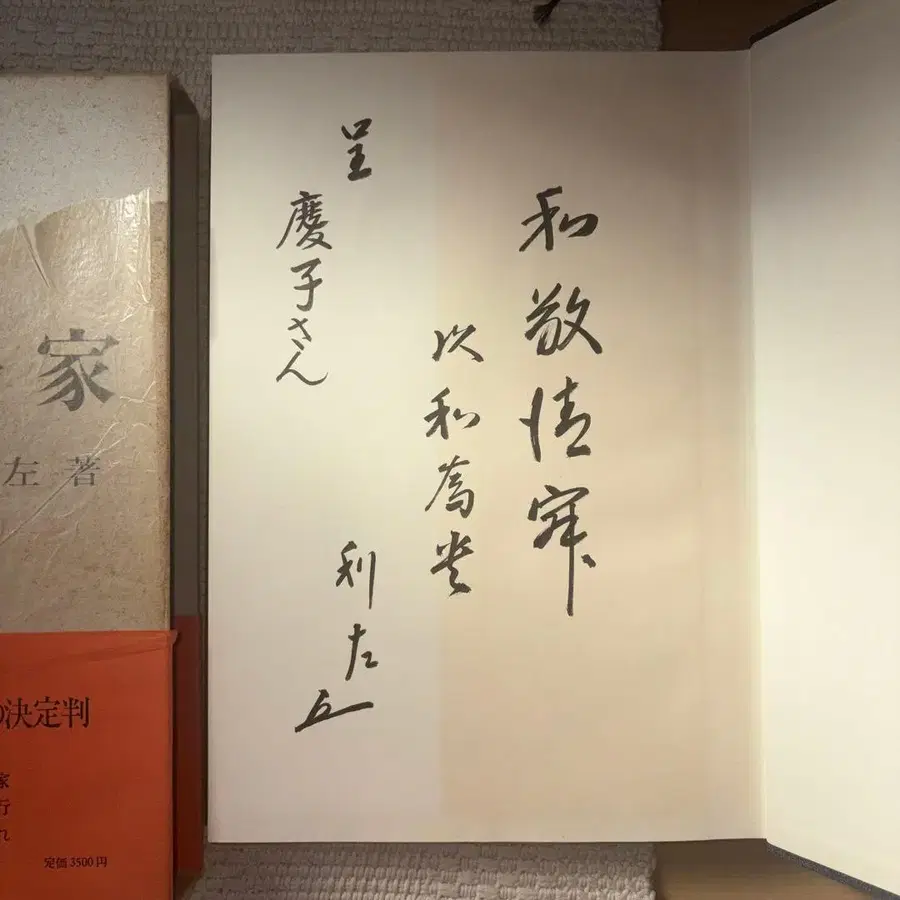 和敬清寂
以和為貴
呈
慶子さん
利左
家
左著
の決定判
家
行
れ
定価3500円